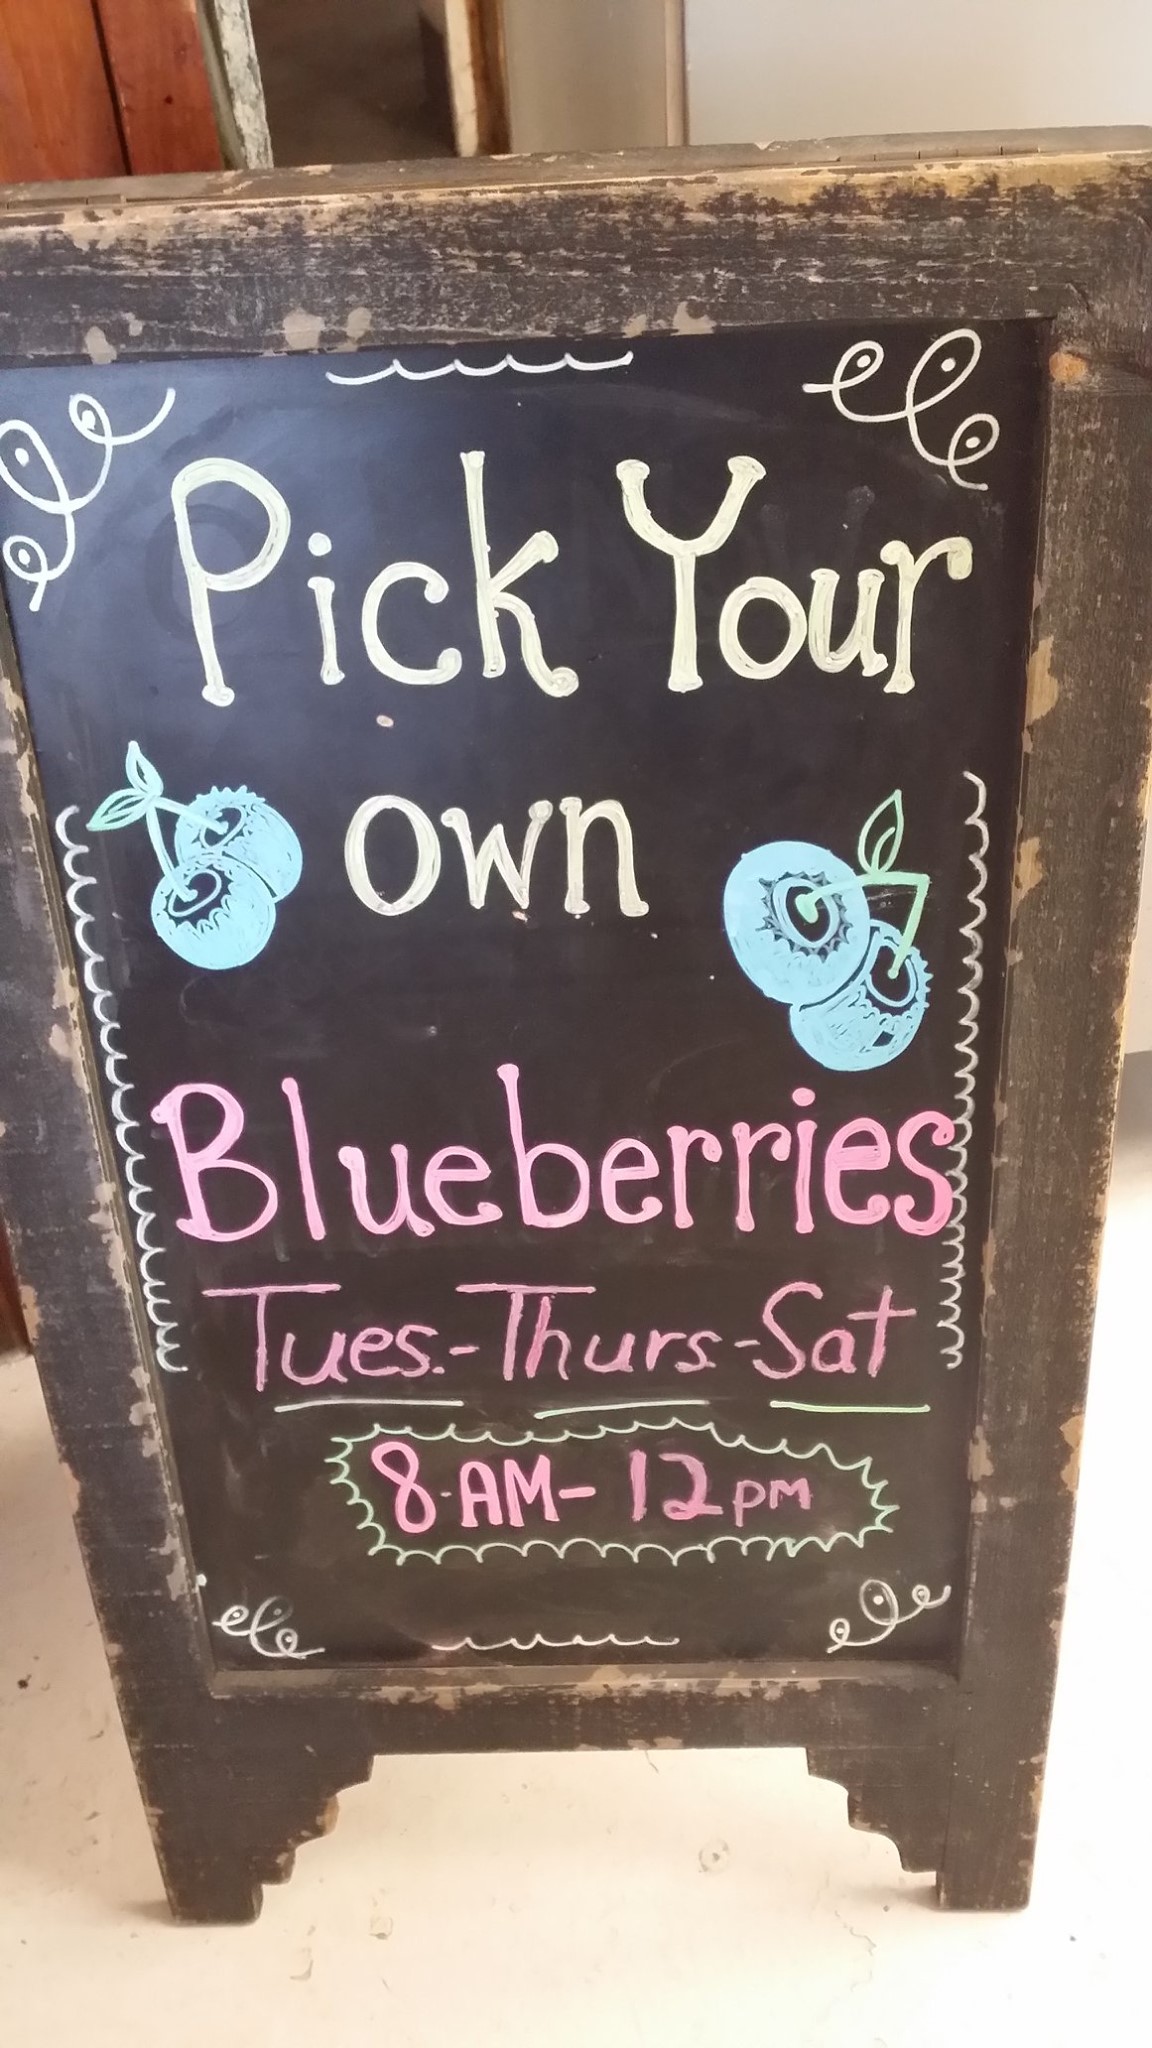 Pick Your
own
Blueberries
Tues.-Thurs-Sat
8-AM- 12pm